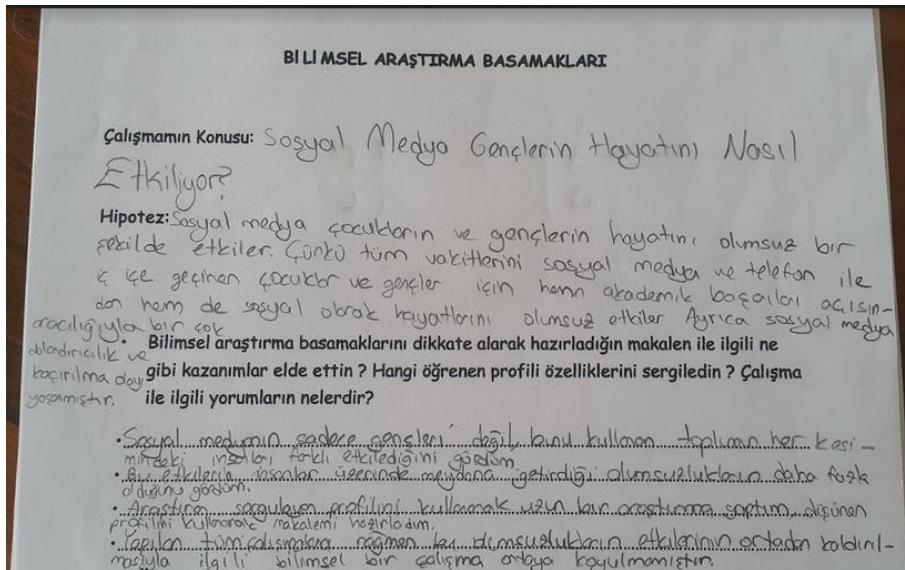 BİLİMSEL ARAŞTIRMA BASAMAKLARI
Çalışmamın Konusu: Sosyal Medya Gençlerin Hayatını Nasıl
Etkiliyor?
Hipotez: Sosyal medya çocukların ve gençlerin hayatını olumsuz bir
şekilde etkiler. Çünkü tüm vakitlerini sosyal medya ve telefon ile
iç içe geçinen çocuklar ve gençler için hem akademik başarıları açısın-
dan hem de sosyal olarak hayatlarını olumsuz etkiler Ayrıca sosyal medya
aracılığıyla bir çok
dolandırıcılık ve
kaçırılma olay
yaşamıştır.
• Bilimsel araştırma basamaklarını dikkate alarak hazırladığın makalen ile ilgili ne
gibi kazanımlar elde ettin ? Hangi öğrenen profili özelliklerini sergiledin ? Çalışma
ile ilgili yorumların nelerdir?
• Sosyal medyanın sadece gençleri değil, bunu kullanan toplumun her kesi-
mindeki insanları farklı etkilediğini gördüm.
• Bu etkilerin insanlar üzerinde meydana getirdiği olumsuzlukların daha fazla
olduğunu gördüm.
• Araştıran sorgulayan profilini kullanarak uzun bir araştırma yaptım, düşünen
profilini kullanarak makalemi hazırladım.
• Yapılan tüm çalışmalara rağmen bu olumsuzlukların etkilerinin ortadan kaldırıl-
masıyla ilgili bilimsel bir çalışma ortaya koyulmamıştır.